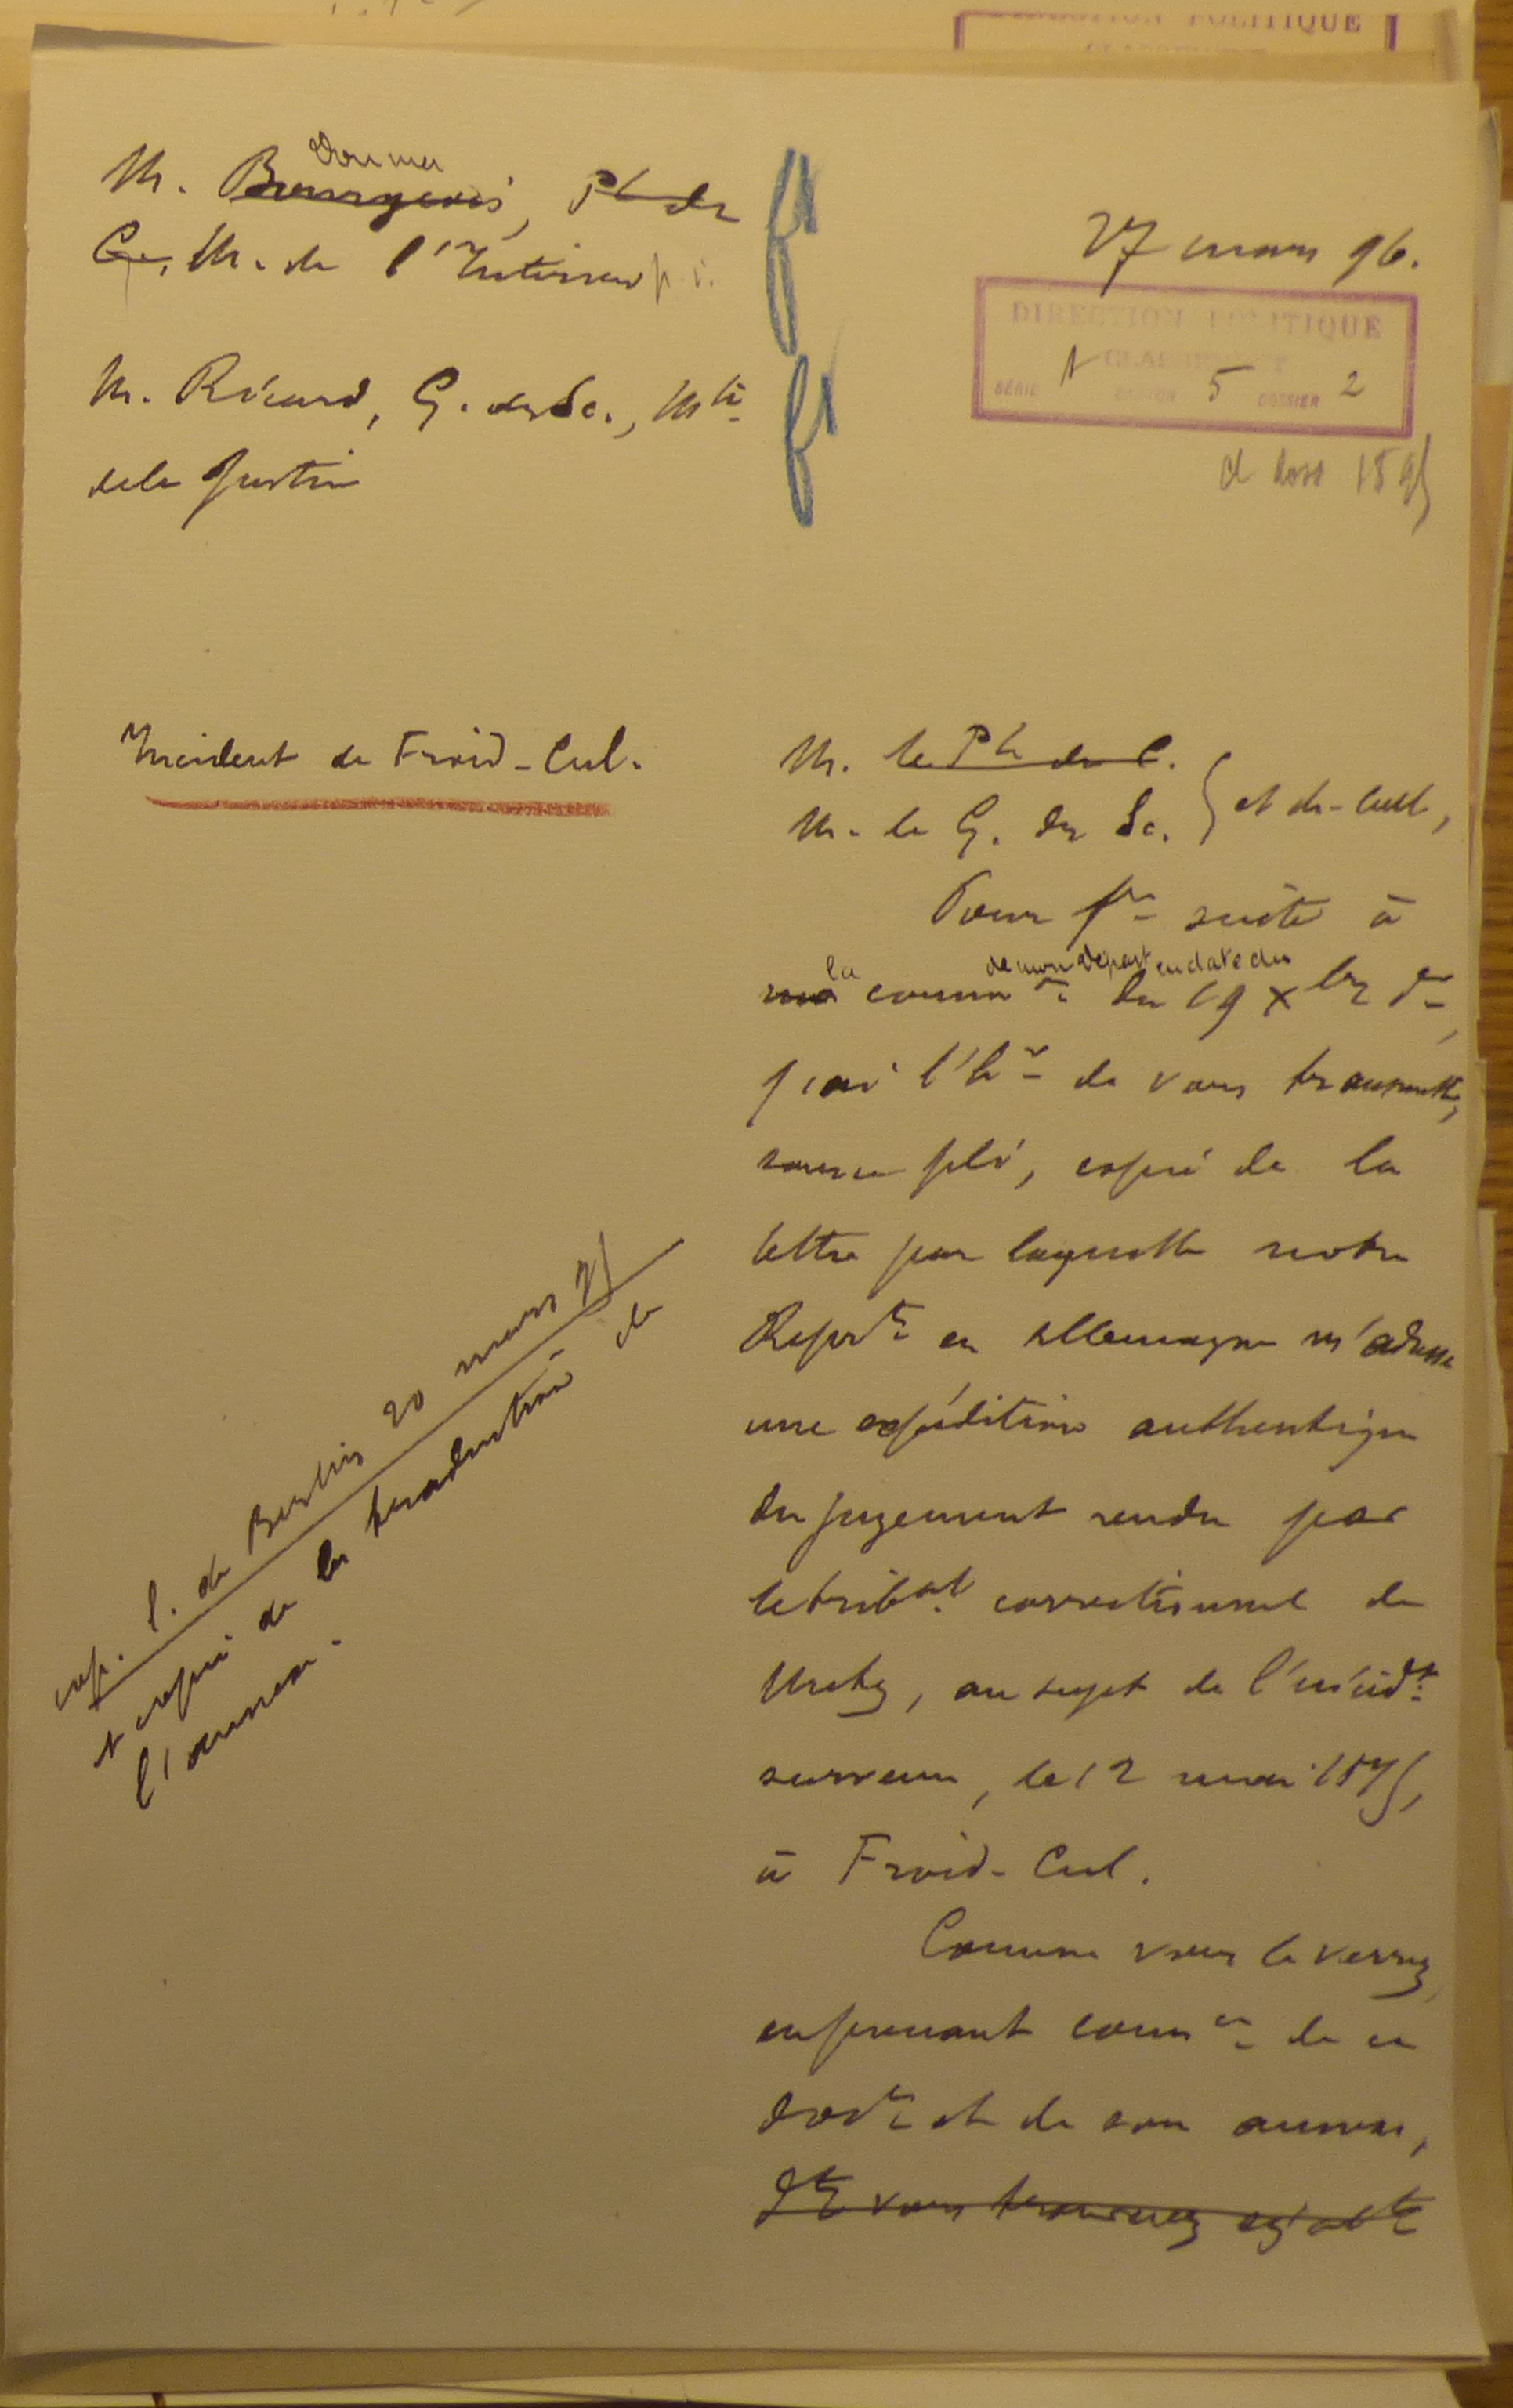 DIRECTION POLITIQUE
Doumer
M. Bourgeois, Pt du
C., M. de l'Intérieur p. i.
27 mars 96.
DIRECTION POLITIQUE
CLASSEMENT
SÉRIE A CARTON 5 DOSSIER 2
M. Ricard, G. des Sc., Mtre
de la Justice
d doss 1895
Incident de Froid-Cul.
M. le Pt du C.
M. le G. des Sc. } et ch. Coll,
Pour fre suite à
la de mon Départ en date du
ma common du 19 Xbre der,
j'ai l'hr de vous transmettre,
sous ce pli, copie de la
lettre par laquelle notre
Représt en Allemagne m'adresse
une expédition authentique
du jugement rendu par
le tribal correctionnel de
Metz, au sujet de l'incidt
survenu, le 12 mai 1895,
à Froid-Cul.
cop. l. de Berlin 20 mars 71
+ copie de la traduction de
l'annexe.
Comme vous le verrez,
en prenant connce de ce
doct et de son annexe,
dt vous trouverez égalt